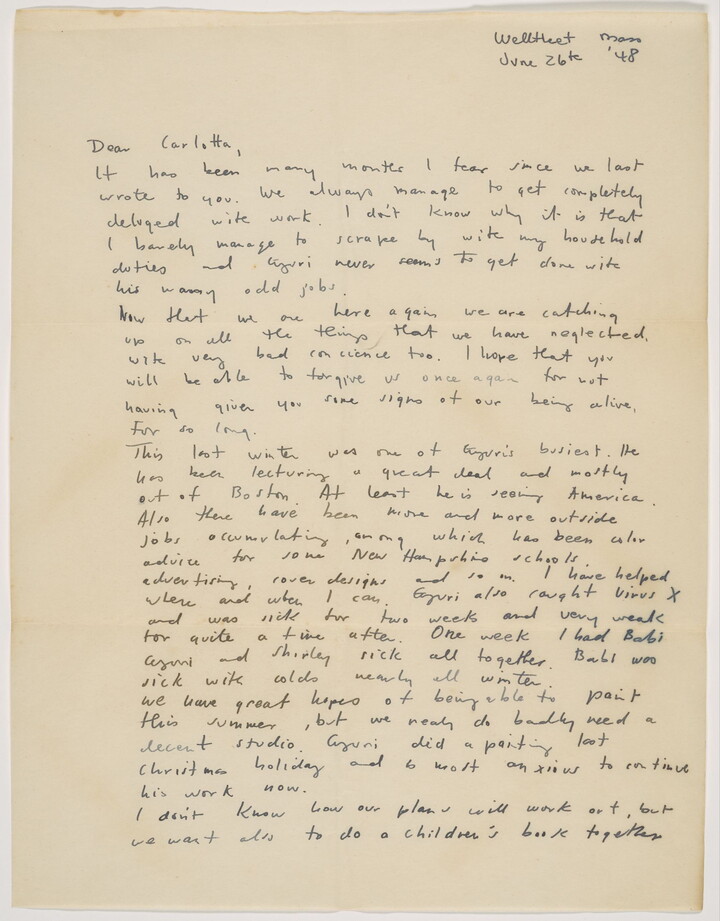 Wellfleet Mass
June 26th '48
Dear Carlotta,
It has been many months I fear since we last
wrote to you. We always manage to get completely
deluged with work. I don't know why it is that
I barely manage to scrape by with my household
duties and Gyuri never seems to get done with
his many odd jobs.
Now that we are here again we are catching
up on all the things that we have neglected,
with very bad concience too. I hope that you
will be able to forgive us once again for not
having given you some signs of our being alive,
for so long.
This last winter was one of Gyuri's busiest. He
has been lecturing a great deal and mostly
out of Boston. At least he is seeing America.
Also there have been more and more outside
jobs accumulating, among which has been color
advice for some New Hampshire schools,
advertising, cover designs and so on. I have helped
where and when I can. Gyuri also caught Virus X
and was sick for two weeks and very weak
for quite a time after. One week I had Babi
Gyuri and Shirley sick all together. Babi was
sick with colds nearly all winter.
We have great hopes of being able to paint
this summer, but we realy do badly need a
decent studio. Gyuri did a painting last
Christmas holiday and is most anxious to continue
his work now.
I don't know how our plans will work out, but
we want also to do a children's book together